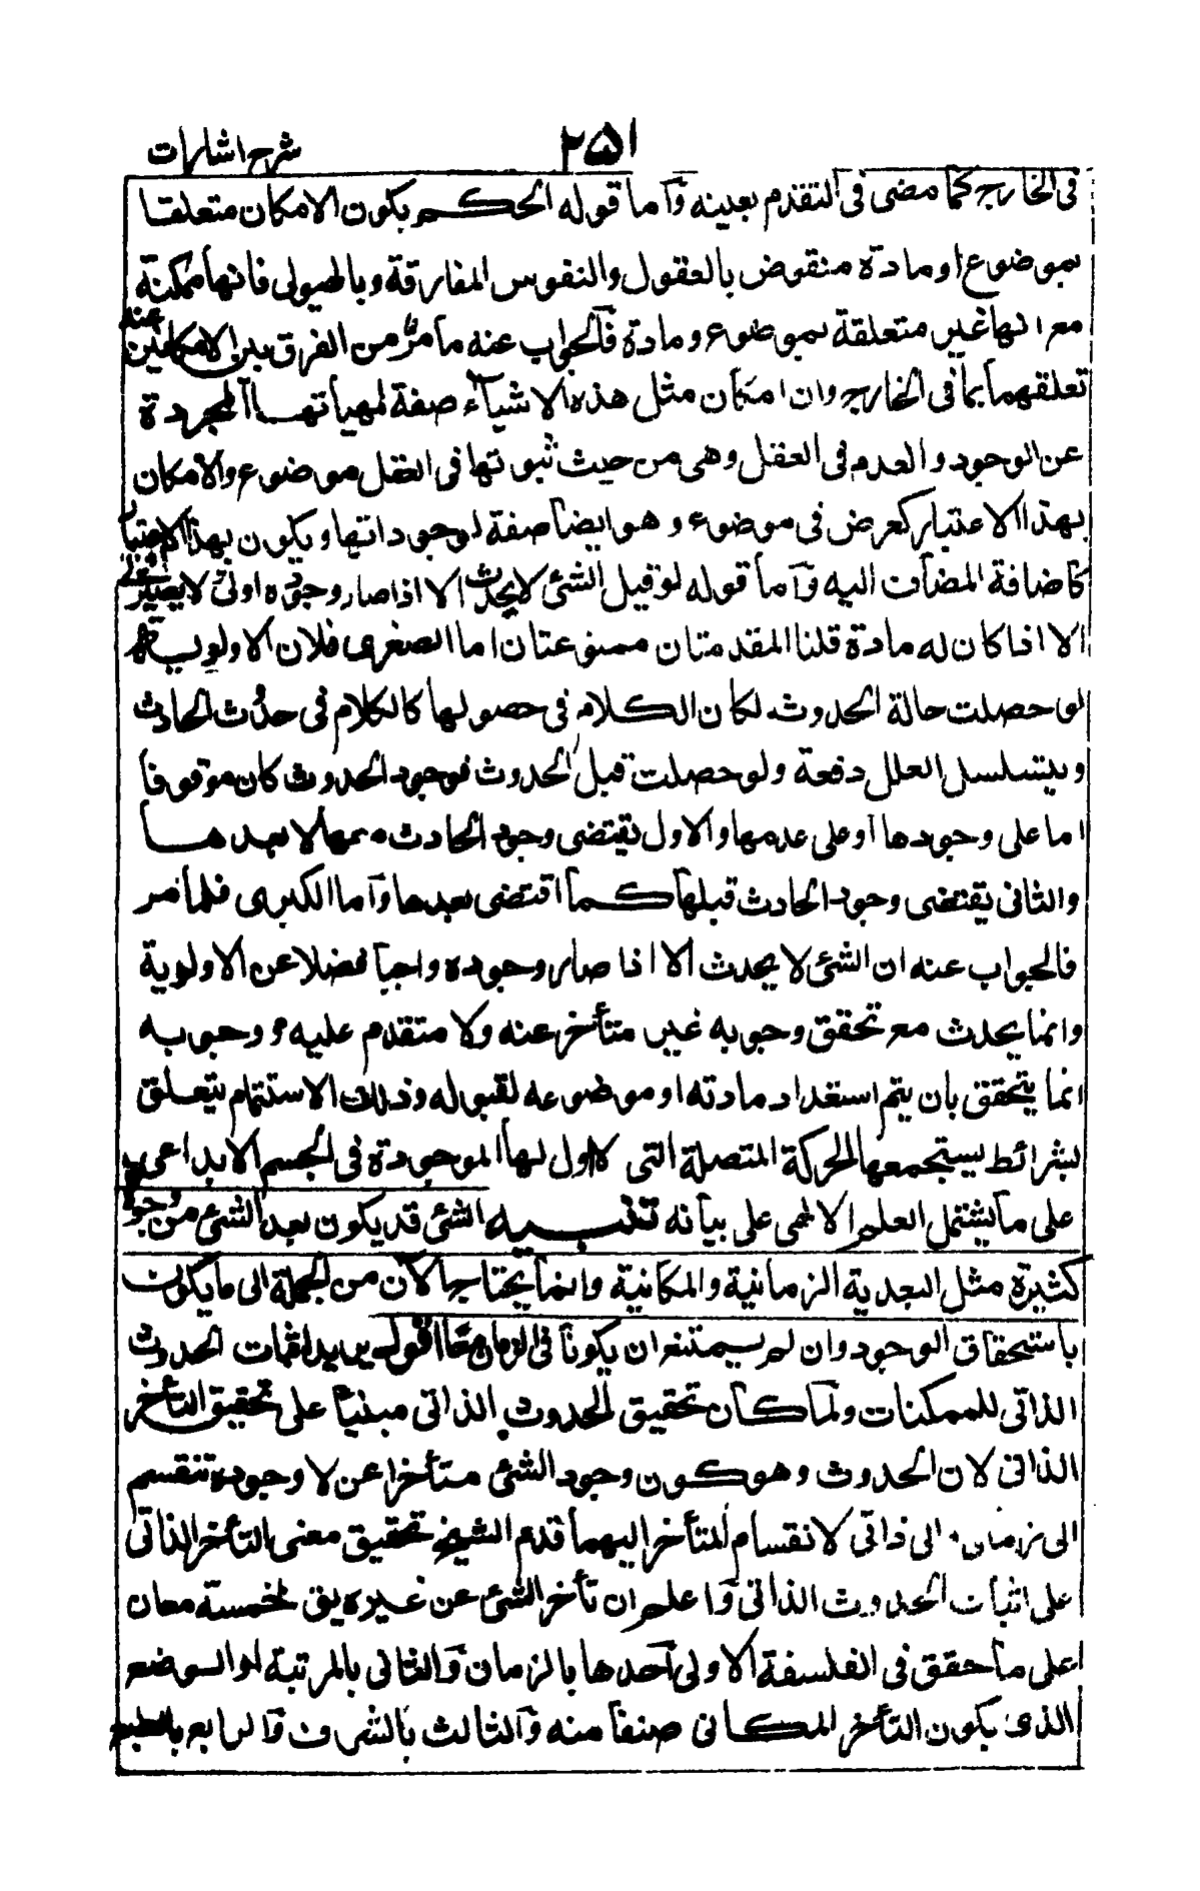 شرح اشارات
٢٥١
فى الخارج كما مضى فى التقدم بعينه وأما قوله الحكم بكون الامكان متعلقا
بموضوع او مادة منقوض بالعقول والنفوس المفارقة وبالهيولى فانها ممكنة
مع انها غير متعلقة بموضوع ومادة فالجواب عنه ما مرّ من الفرق بين الامكانين عند
تعلقهما بما فى الخارج وان امكان مثل هذه الاشياء صفة لمهياتها المجردة
عن الوجود والعدم فى العقل وهى من حيث ثبوتها فى العقل موضوع والامكان
بهذا الاعتبار كعرض فى موضوع وهو ايضا صفة لوجوداتها ويكون بهذا الاعتبار
كاضافة المضاف اليه وأما قوله لو قيل الشئ لا يحدث الا اذا صار وجوده اولى ولا يصير اولى
الا اذا كان له مادة قلنا المقدمتان ممنوعتان اما الصغرى فلان الاولوية
لو حصلت حالة الحدوث لكان الكلام فى حصولها كالكلام فى حدوث الحادث
ويتسلسل العلل دفعة ولو حصلت قبل الحدوث فوجود الحدوث كان موقوفا
اما على وجودها أو على عدمها والاول يقتضى وجود الحادث معها لا بعدها
والثانى يقتضى وجود الحادث قبلها كما اقتضى بعدها وأما الكبرى فلما مر
فالجواب عنه ان الشئ لا يحدث الا اذا صار وجوده واجبا فضلا عن الاولوية
وانما يحدث مع تحقق وجوبه غير متأخر عنه ولا متقدم عليه ووجوبه
انما يتحقق بان يتم استعداد مادته او موضوعه لقبوله وذلك الاستتمام يتعلق
بشرائط يستجمعها الحركة المتصلة التى لا اول لها الموجودة فى الجسم الابداعى
على ما يشتمل العلم الالهى على بيانه تنبيه الشئ قد يكون بعد الشئ من وجوه
كثيرة مثل البعدية الزمانية والمكانية وانما يحتاج الآن من الجملة الى ما يكون
باستحقاق الوجود وان لم يمتنع ان يكونا فى الزمان معا اقول يريد اثبات الحدوث
الذاتى للممكنات ولما كان تحقيق الحدوث الذاتى مبنيا على تحقيق التأخر
الذاتى لان الحدوث وهو كون وجود الشئ متأخرا عن لا وجوده تنقسم
الى زمانى والى ذاتى لانقسام المتأخر اليهما قدم الشيخ تحقيق معنى التأخر الذاتى
على اثبات الحدوث الذاتى وأعلم ان تأخر الشئ عن غيره يق لخمسة معان
على ما حقق فى الفلسفة الاولى أحدها بالزمان والثانى بالمرتبة او الوضع
الذى يكون التأخر المكانى صنفا منه والثالث بالشرف والرابع بالطبع